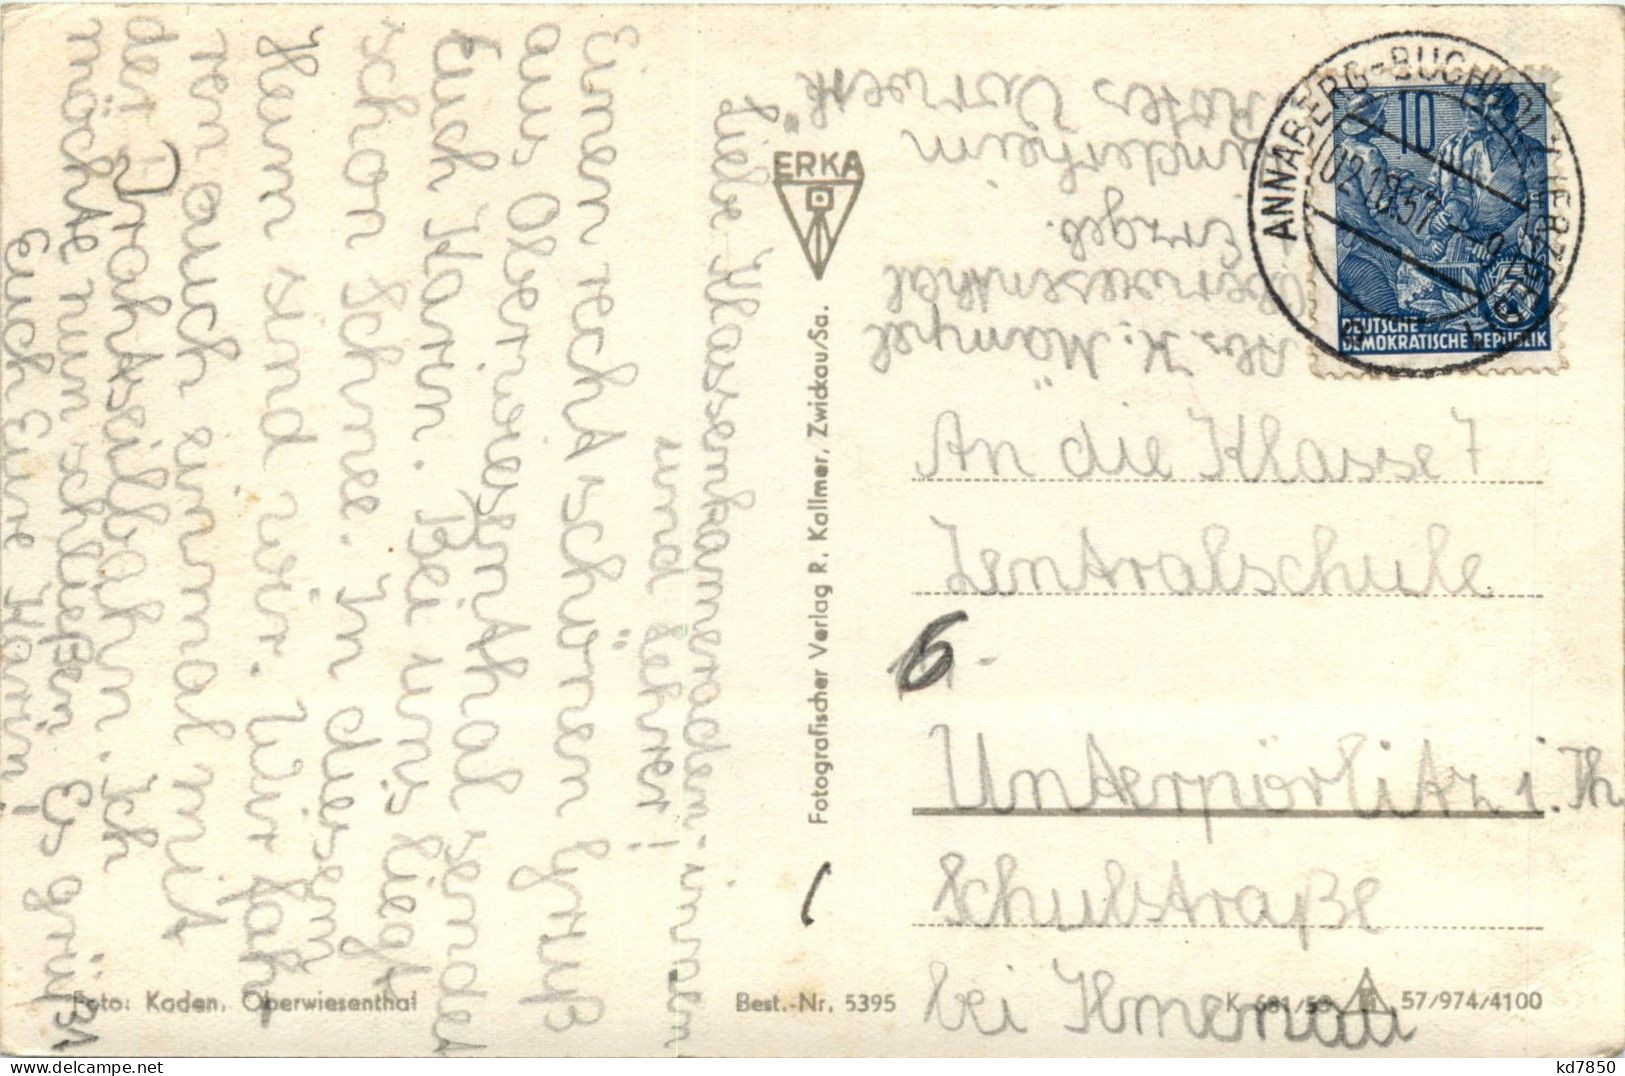 Liebe Klassenkammeraden-innen
und Lehrer!
Einen recht schönen Gruß
aus Oberwiesenthal sendet
Euch Karin. Bei uns liegt
schon Schnee. In diesem
Heim sind wir. Wir fah-
ren auch einmal mit
der Drahtseilbahn. Ich
möchte nun schließen. Es grüßt
Euch Eure Karin!
ERKA
Fotografischer Verlag R. Kallmer, Zwickau/Sa.
Foto: Kaden, Oberwiesenthal
Best.-Nr. 5395
K 681/58
57/974/4100
Abs. K. Mämpel
Oberwiesenthal
Erzgeb.
Kinderheim
"Rotes Vorwerk"
ANNABERG-BUCHHOLZ
02.10.57
10
DEUTSCHE
DEMOKRATISCHE REPUBLIK
An die Klasse 7
Zentralschule
6
Unterpörlitz i. Th
Schulstraße
bei Ilmenau
kd7850